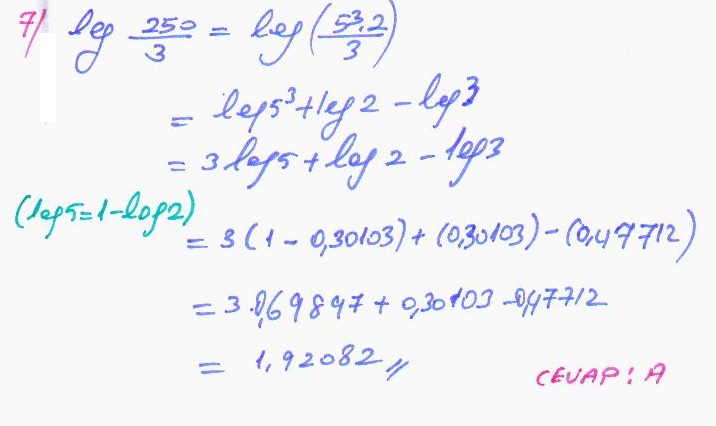 7/ log 250/3 = log(5³.2/3)
= log5³+log2-log3
= 3log5+log2-log3
(log5=1-log2)
= 3(1-0,30103)+(0,30103)-(0,47712)
= 3.0,69897+0,30103-0,47712
= 1,92082//
CEVAP: A